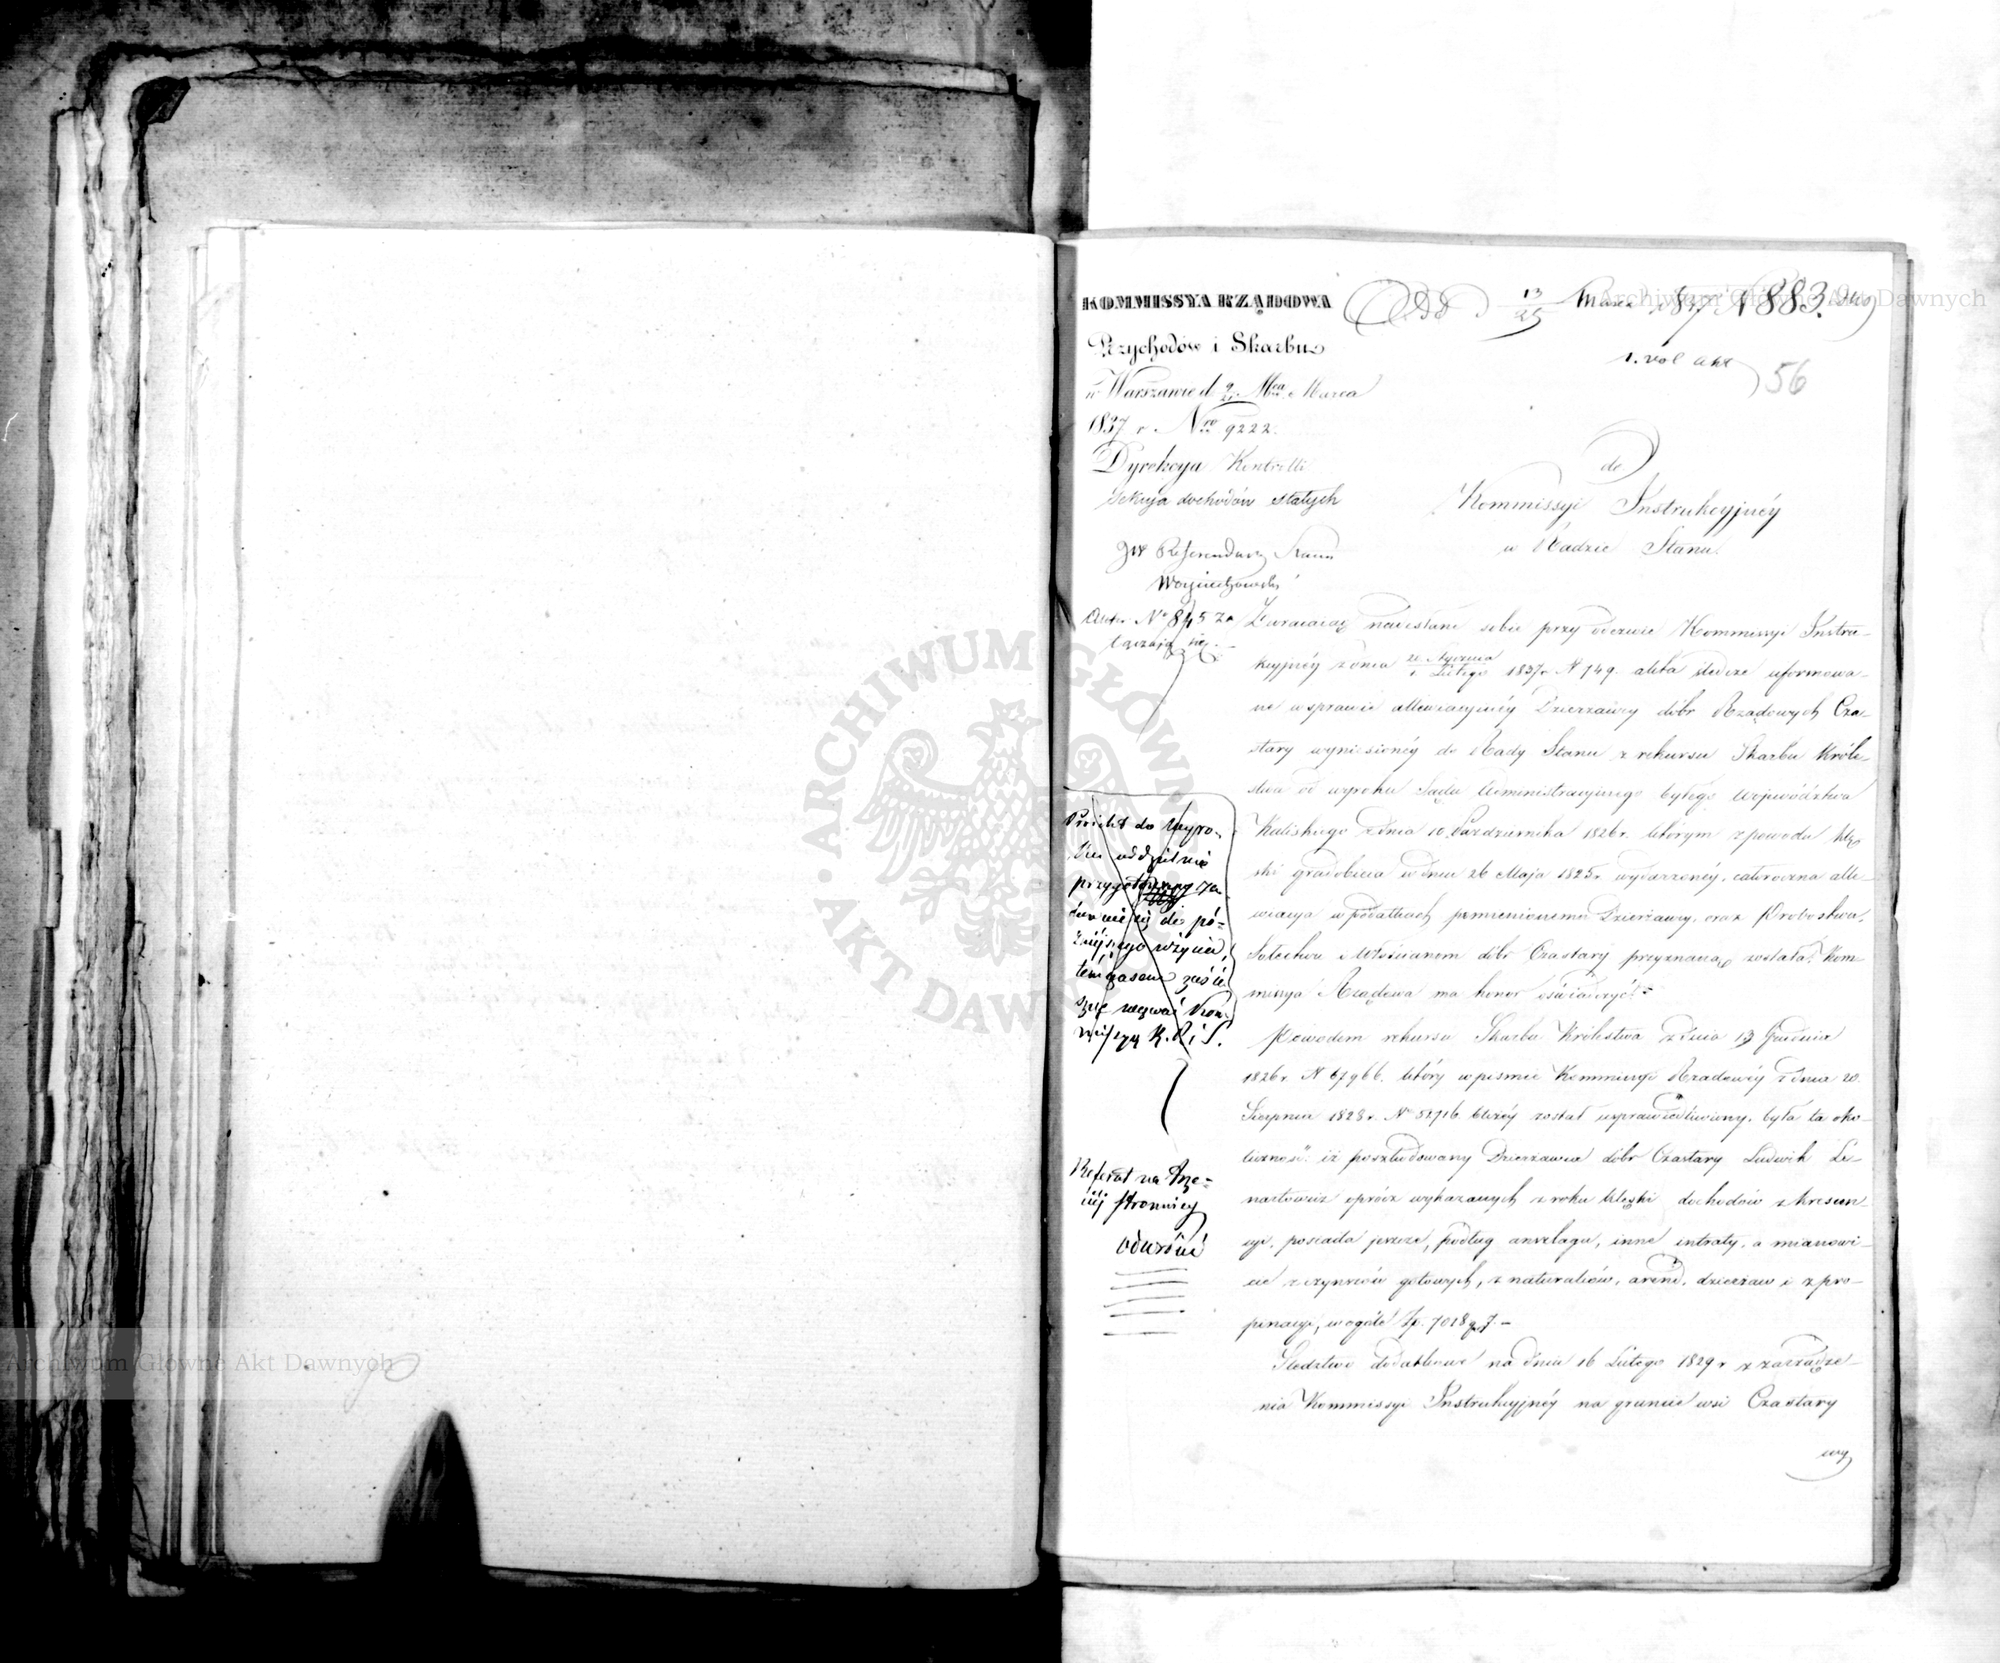 KOMMISSYA RZĄDOWA
Przychodów i Skarbu
w Warszawie d. 9/21 Mca Marca
1837 r. Nro 9222.
Dyrekcya Kontrolli
Sekcya dochodów stałych
JW Referendarz Stanu
Wojciechowski
13/25 Marca 1837 N 883.
1. vol akt
56
do
Kommissyi Instrukcyjnéy
w Radzie Stanu.
Akta No 845 za
łączają się.
Zwracając nadesłane sobie przy odezwie Kommissyi Instru-
kcyjnéy z dnia 20 Stycznia/1 Lutego 1837 r. N 749. akta śledcze uformowa-
ne w sprawie allewiacyjnéy Dzierżawcy dóbr Rządowych Cza-
stary wyniesionéy do Rady Stanu z rekursu Skarbu Króle-
stwa od wyroku Sądu Administracyjnego byłego Województwa
Kaliskiego z dnia 10 Października 1826 r. którym z powodu klę-
ski gradobicia w dniu 26 Maja 1825 r. wydarzonéy, całoroczna alle-
wiacya w podatkach pomienionemu Dzierżawcy, oraz Probostwu,
Sołectwu i Włościanom dóbr Czastary przyznaną została, Kom-
missya Rządowa ma honor oświadczyć:
Powodem rekursu Skarbu Królestwa z dnia 13 Grudnia
1826 r. N 67966. który w piśmie Kommissyi Rządowéy z dnia 20.
Sierpnia 1828 r. No 52716 bliżéy został usprawiedliwiony, była ta oko-
liczność: iż poszkodowany Dzierżawca dóbr Czastary Ludwik Le-
nartowicz oprócz wykazanych z roku klęski dochodów z krescen-
cyi, posiada jeszcze, podług anszlagu, inne intraty, a mianowi-
cie z czynszów gotowych, z naturaliów, arend, dzierżaw i z pro-
pinacyi, w ogóle Zp. 7018 g. 7. –
Śledztwo dodatkowe na dniu 16 Lutego 1829 r z zarządze-
nia Kommissyi Instrukcyjnéy na gruncie wsi Czastary
wy
Projekt do Wyro-
ku oddzielnie
przygotowany za-
chowuje się do pó-
źniejszego użycia,
tém czasem zaś
wezwać
K. R. i S.
Referat na trze-
ciéj stronnicy
odwróć
Archiwum Główne Akt Dawnych
Archiwum Główne Akt Dawnych
ARCHIWUM GŁÓWNE AKT DAWNYCH